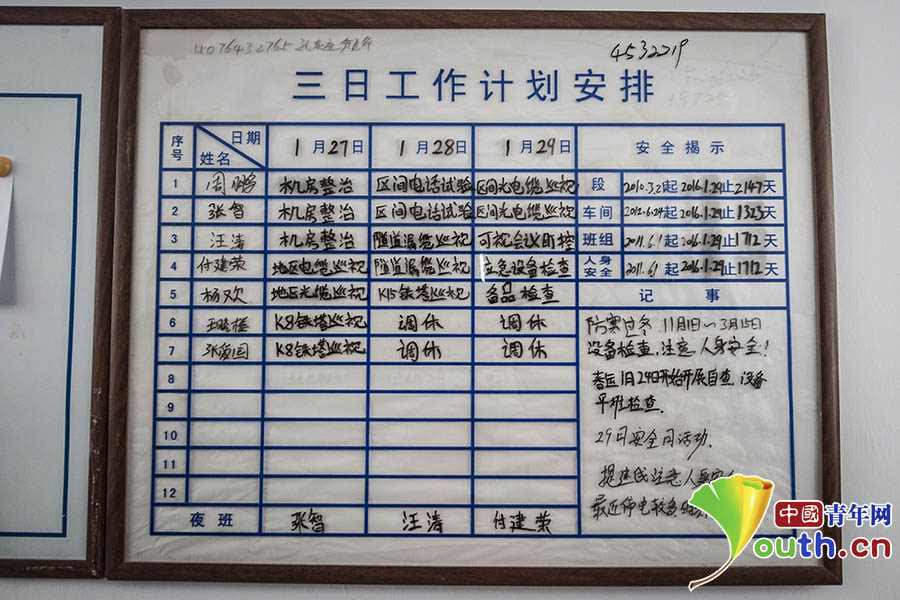 4532219
三日工作计划安排
序号 日期 姓名 1月27日 1月28日 1月29日 安全揭示
1 周鹏 机房整治 区间电话试验 区间光电缆巡视 段 2010.3.21起 2016.1.29止2147天
2 张智 机房整治 区间电话试验 区间光电缆巡视 车间 2012.6.24起 2016.1.29止1323天
3 汪涛 机房整治 隧道漏缆巡视 可视会议盯控 班组 2011.6.1起 2016.1.29止1712天
4 付建荣 地区电缆巡视 隧道漏缆巡视 应急设备检查 人身安全 2011.6.1起 2016.1.29止1712天
5 杨欢 地区光缆巡视 K15铁塔巡视 备品检查 记事
6 K8铁塔巡视 调休 调休 防寒过冬 11月1日~3月15日
7 K8铁塔巡视 调休 调休 设备检查,注意人身安全!
8 春运1月24日开始开展自查,设备
9 检查.
10 29日安全日活动.
11 注意人身安
12 最近停电较多
夜班 张智 汪涛 付建荣
中國青年网
Youth.cn